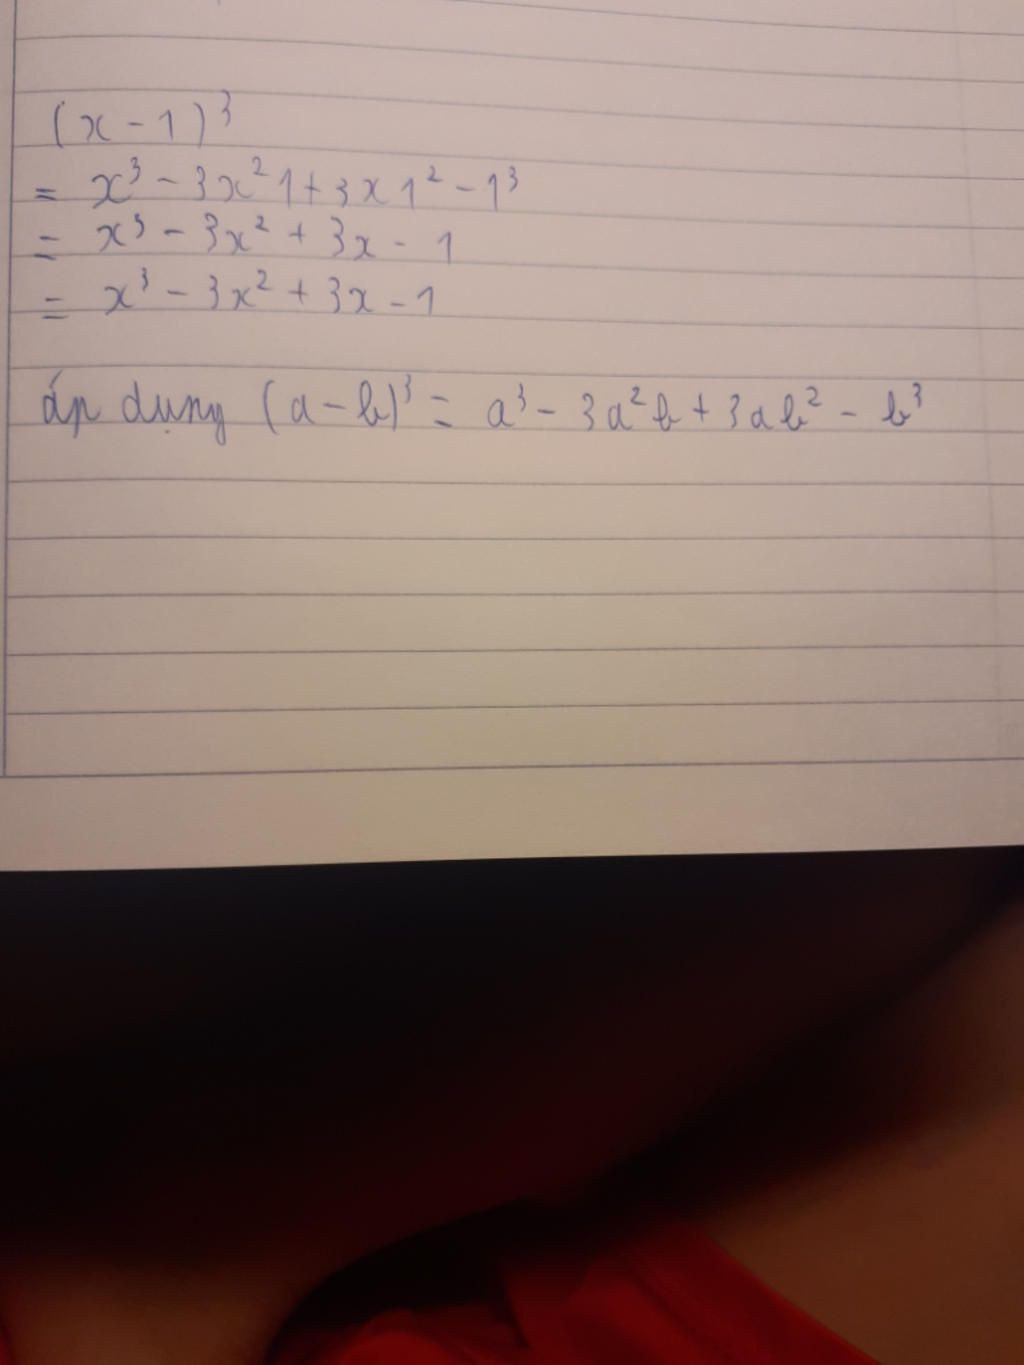 (x - 1)³
= x³ - 3x²1 + 3x1² - 1³
= x³ - 3x² + 3x - 1
= x³ - 3x² + 3x - 1
áp dụng (a - b)³ = a³ - 3a²b + 3ab² - b³